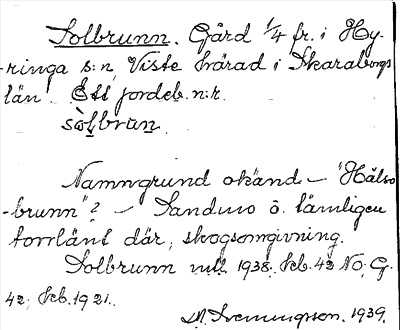 Solbrunn. Gård 1/4 fr. i Hy-
-ringa s:n, Viste härad i Skaraborgs
län. Ett jordeb. n:r.
sòlbrun.
Namngrund okänd. – "Hälso
-brunn"? – Sandmo o. tämligen
torrlänt där, skogsomgivning.
Solbrunn 1938. kb. 42 NO; G.
42, kb. 1921.
Svenungsson. 1939.